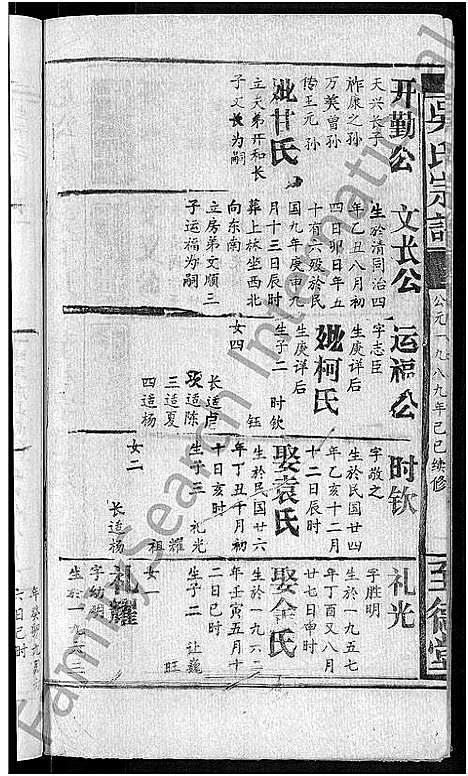 吴氏宗譜
公元一九八九年己巳续修
至德堂
开勤公
天兴长子
祚康之孙
万英曾孙
传王元孙
妣甘氏
立天弟开和长
子文长为嗣
文长公
生於清同治四
年乙丑八月初
四日卯日年五
十有六殁於民
国九年庚申九
月十三日辰时
葬上林坐西北
向东南
立房弟文顺三
子运福为嗣
运福公
字志臣
生庚详后
妣柯氏
生庚详后
生子二 时钦
钰
女四
长适卢
次适陈
三适夏
四适杨
时钦
字敬之
生於民国廿四
年乙亥十二月
十二日辰时
娶袁氏
生於民国廿六
年丁丑千月初
十日亥时
生子三 礼光
耀
祖
女二
长适杨
礼光
字胜明
生於一九五七
年丁酉又八月
廿七日申时
娶金氏
生於一九六二
年壬寅五月十
二日巳时
生子二 让巍
旺
女一
礼耀
字幼
生於一九六三
年癸卯九
六日巳时
FamilySearch International